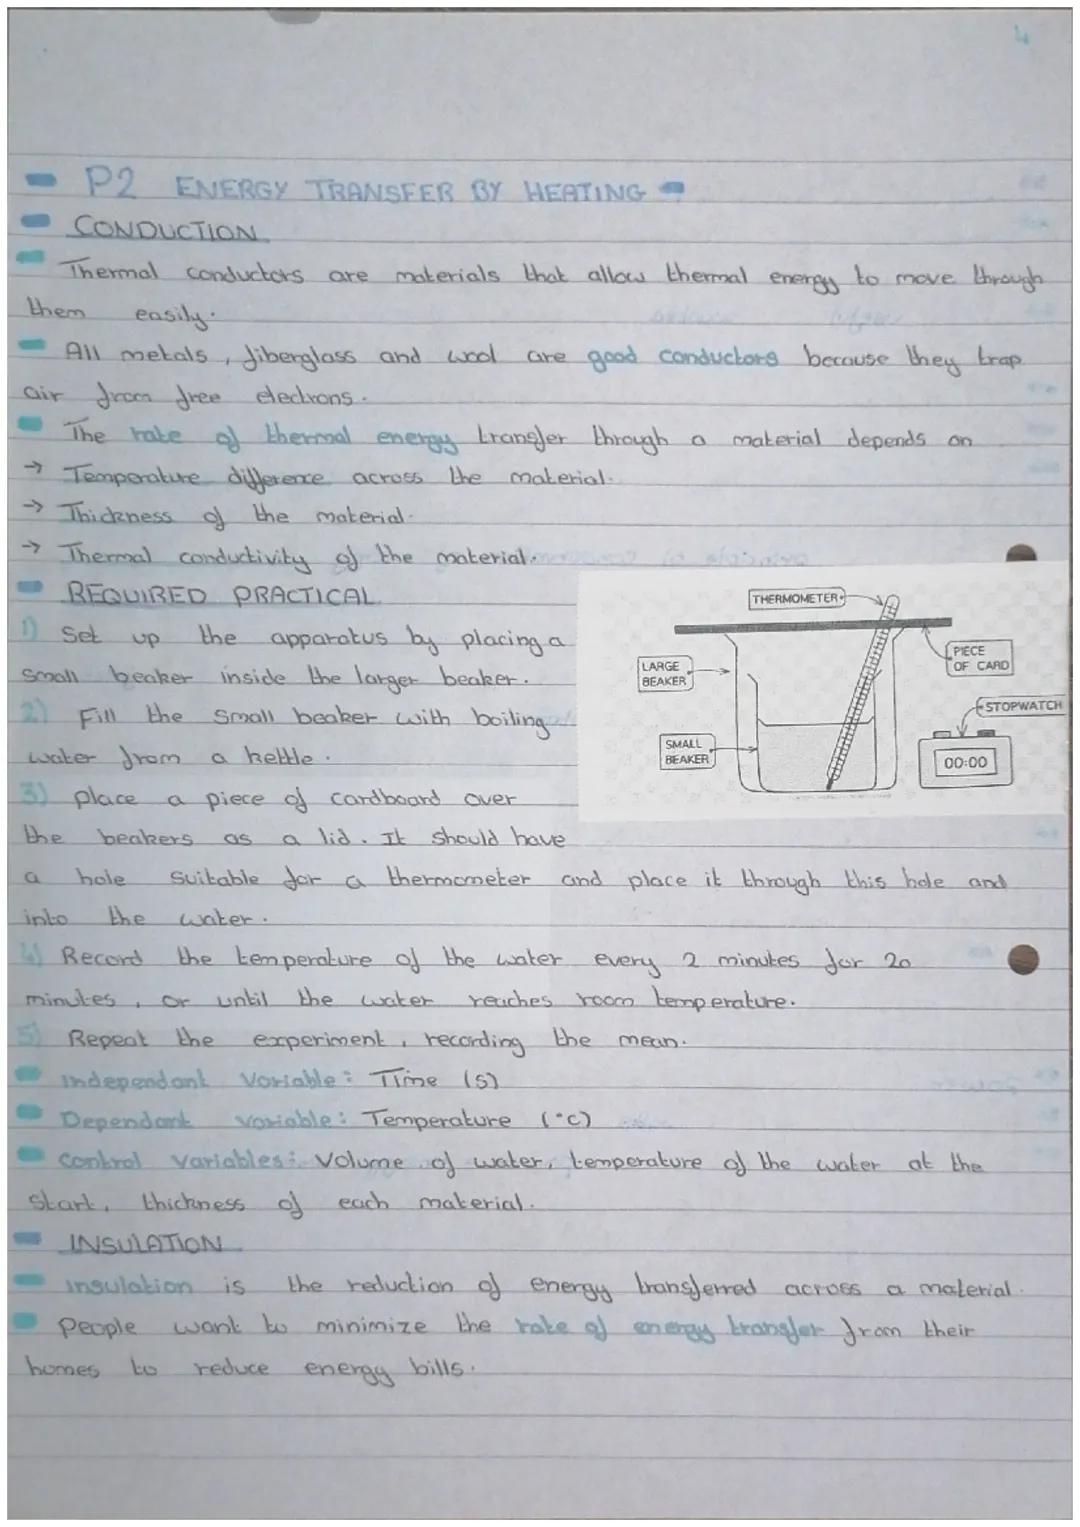 4
P2 ENERGY TRANSFER BY HEATING
CONDUCTION
Thermal conductors are materials that allow thermal energy to move through
them easily.
All metals, fiberglass and wool are good conductors because they trap
air from free electrons.
The rate of thermal energy transfer through a material depends on
→ Temperature difference across the material.
→ Thickness of the material.
→ Thermal conductivity of the material.
REQUIRED PRACTICAL
1) Set up the apparatus by placing a
small beaker inside the larger beaker.
2) Fill the small beaker with boiling
water from a kettle.
3) place a piece of cardboard over
the beakers as a lid. It should have
a hole suitable for a thermometer and place it through this hole and
into the water.
4) Record the temperature of the water every 2 minutes for 20
minutes, or until the water reaches room temperature.
5) Repeat the experiment, recording the mean.
Independant Variable: Time (s)
Dependant variable: Temperature (°c)
Control variables: Volume of water, temperature of the water at the
start, thickness of each material.
INSULATION
Insulation is the reduction of energy transferred across a material.
People want to minimize the rate of energy transfer from their
homes to reduce energy bills.
THERMOMETER
LARGE
BEAKER
PIECE
OF CARD
STOPWATCH
SMALL
BEAKER
00:00